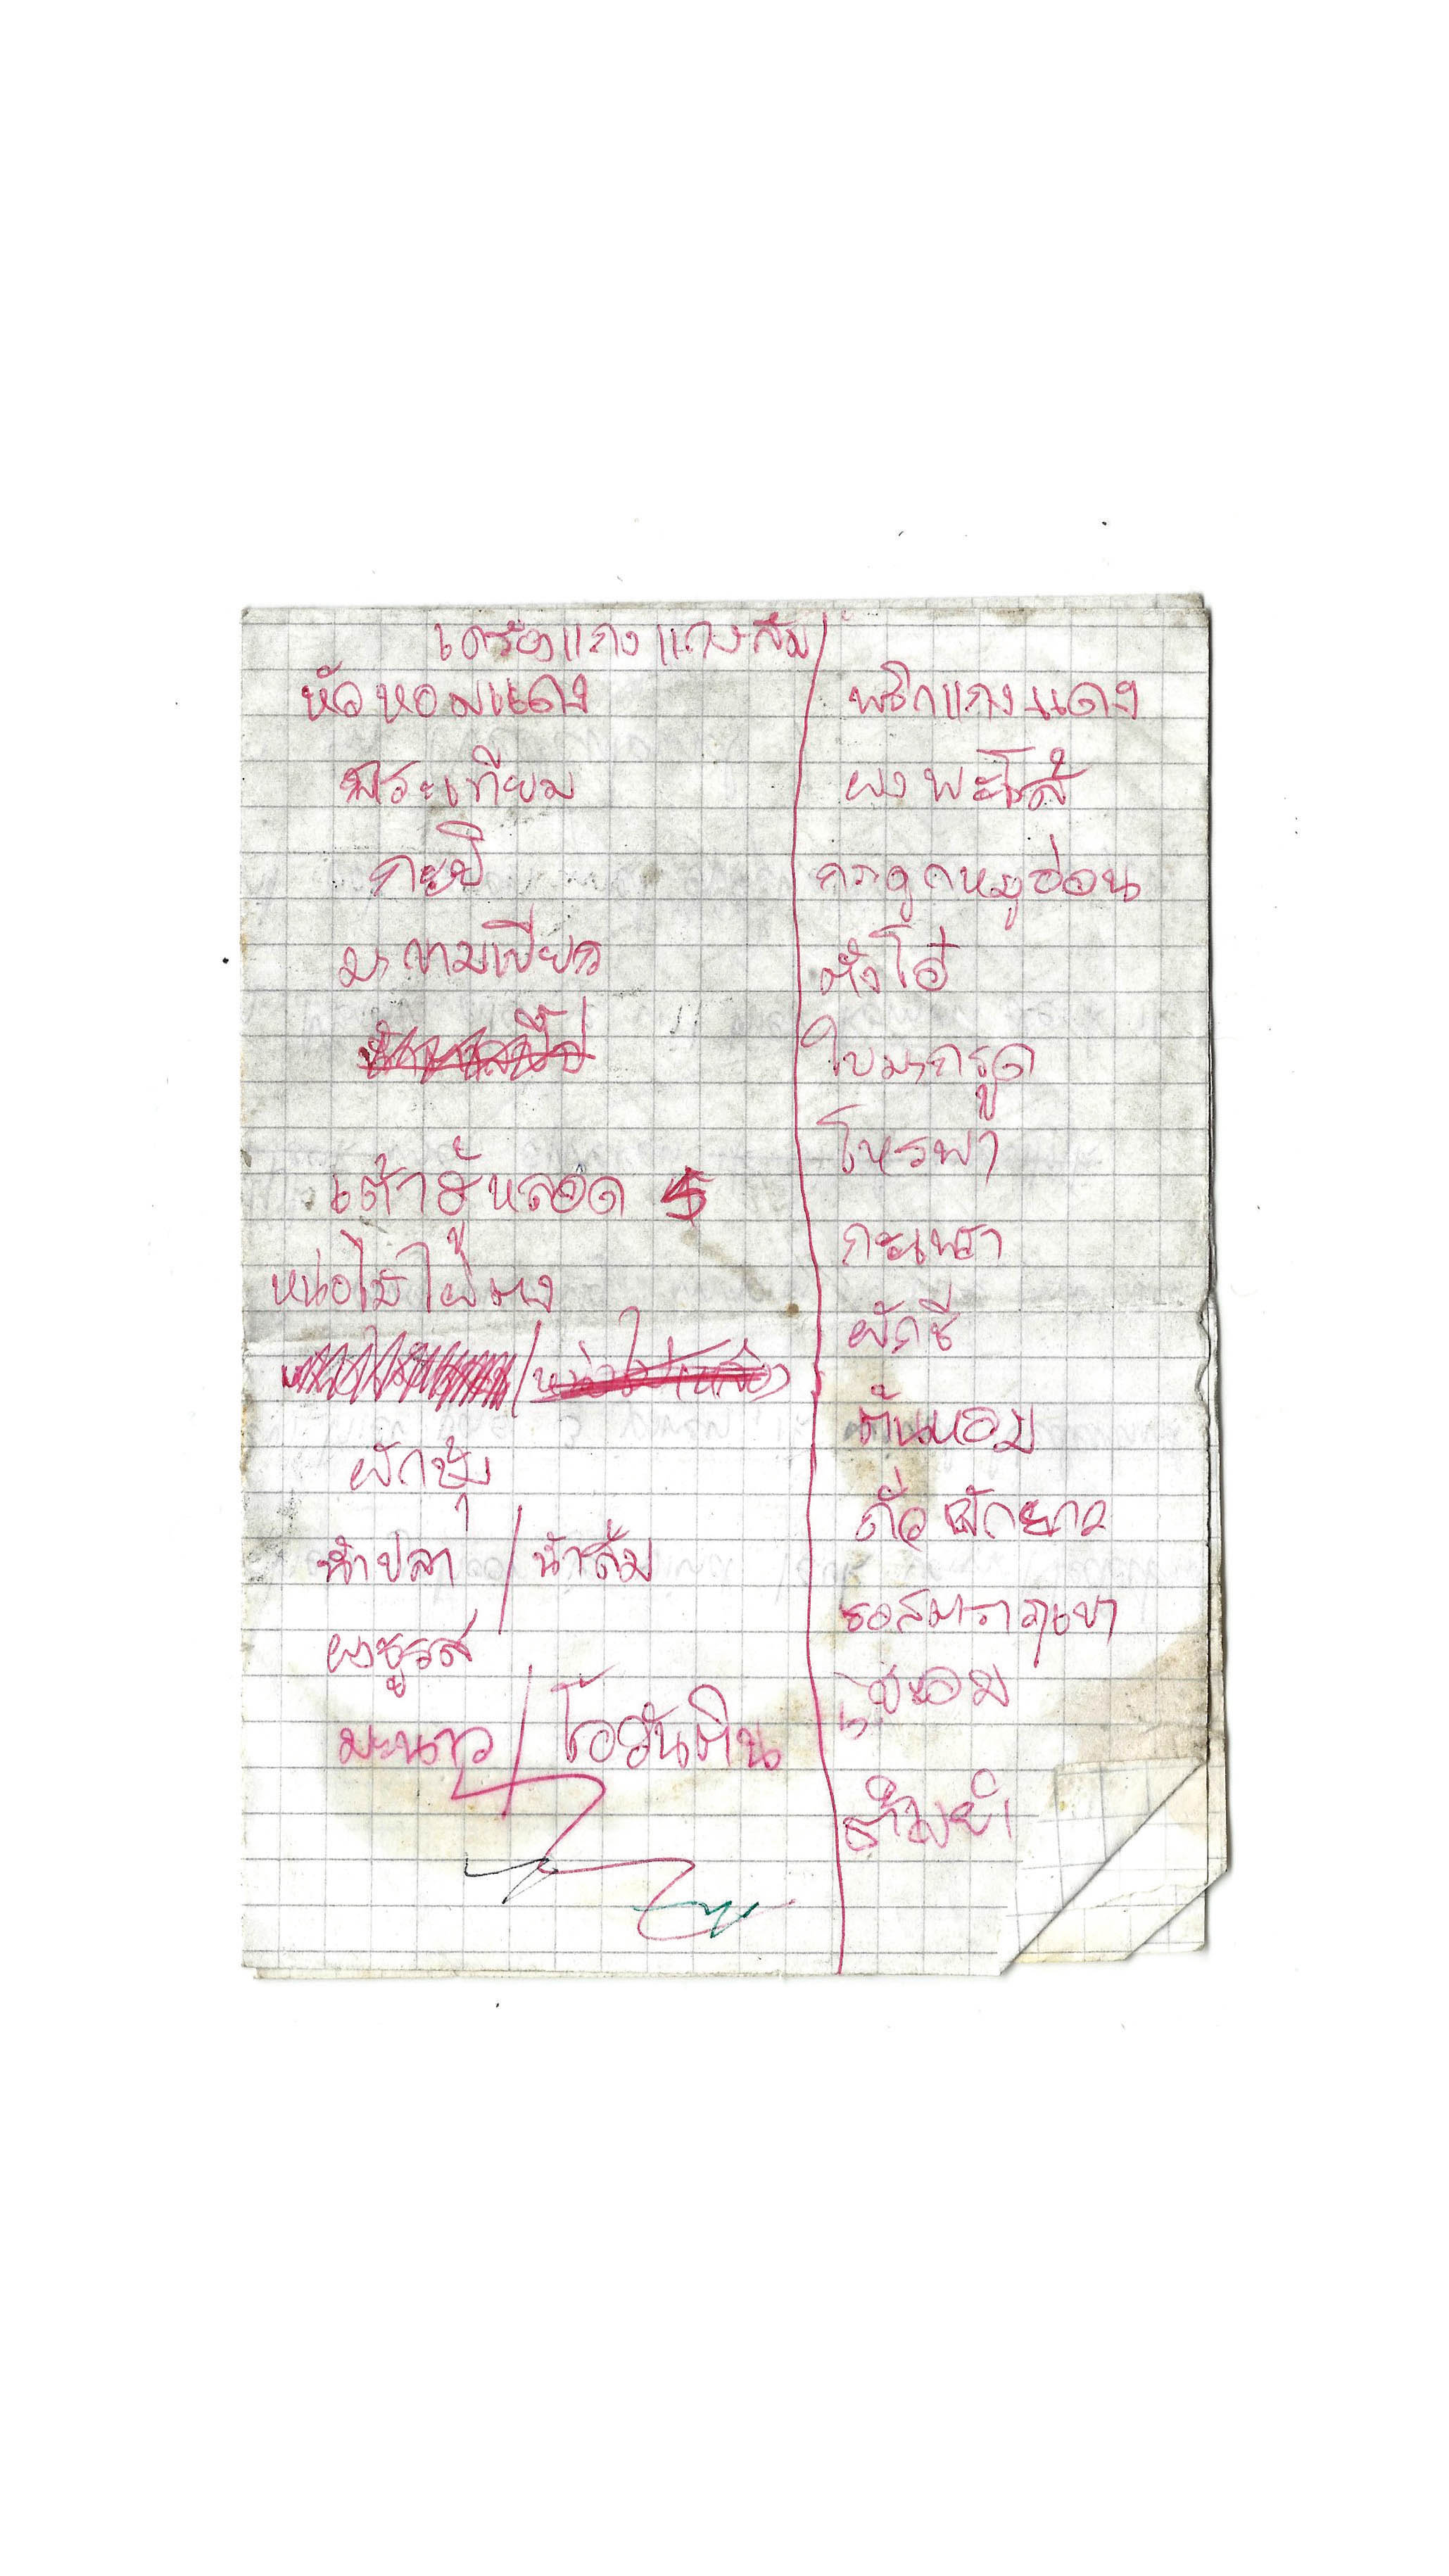 เครื่องแกง แกงส้ม
หัวหอมแดง
กระเทียม
กะปิ
มะขามเปียก
เต้าฮู้หลอด 5
หน่อไม้ไผ่ตง
ผักชุบ
น้ำปลา / น้ำส้ม
ผงชูรส
มะนาว / โอวัลติน
พริกแกงแดง
ผงพะโล้
กรดูกหมูอ่อน
ตั้งโอ๋
ใบมะกรูด
โหรพา
กะเพรา
ผักชี
ต้นหอม
ถั่วฝักยาว
ชะอม
ต้มยำ